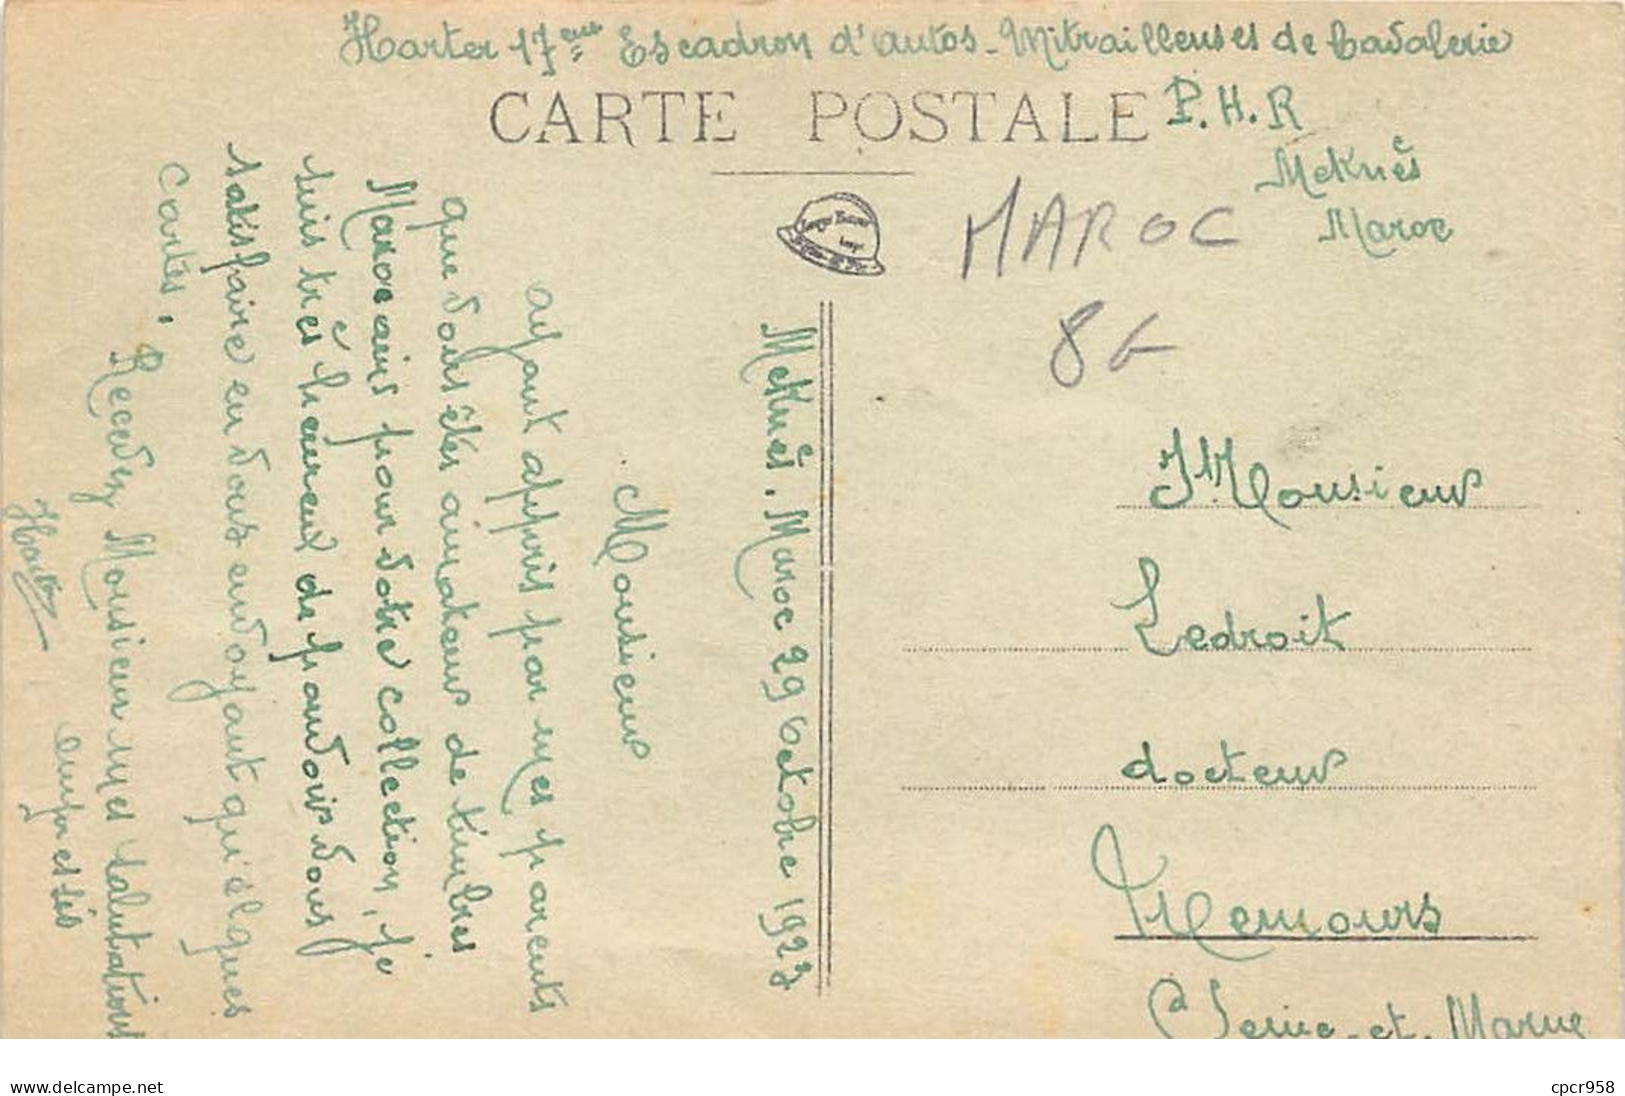 Harter 17ème Escadron d'autos-Mitrailleuses de Cavalerie
CARTE POSTALE
P.H.R
Meknès
Maroc
MAROC
8G
Meknès. Maroc 29 Octobre 1927
Monsieur
ayant appris par mes parents
que vous êtes amateur de timbres
Marocains pour votre collection, je
suis très heureux de pouvoir vous
satisfaire en vous envoyant quelques
cartes.
Recevez Monsieur mes salutations
empressés
Harter
Monsieur
Ledroit
docteur
Nemours
Seine-et-Marne
delcampe.net
cpcr958